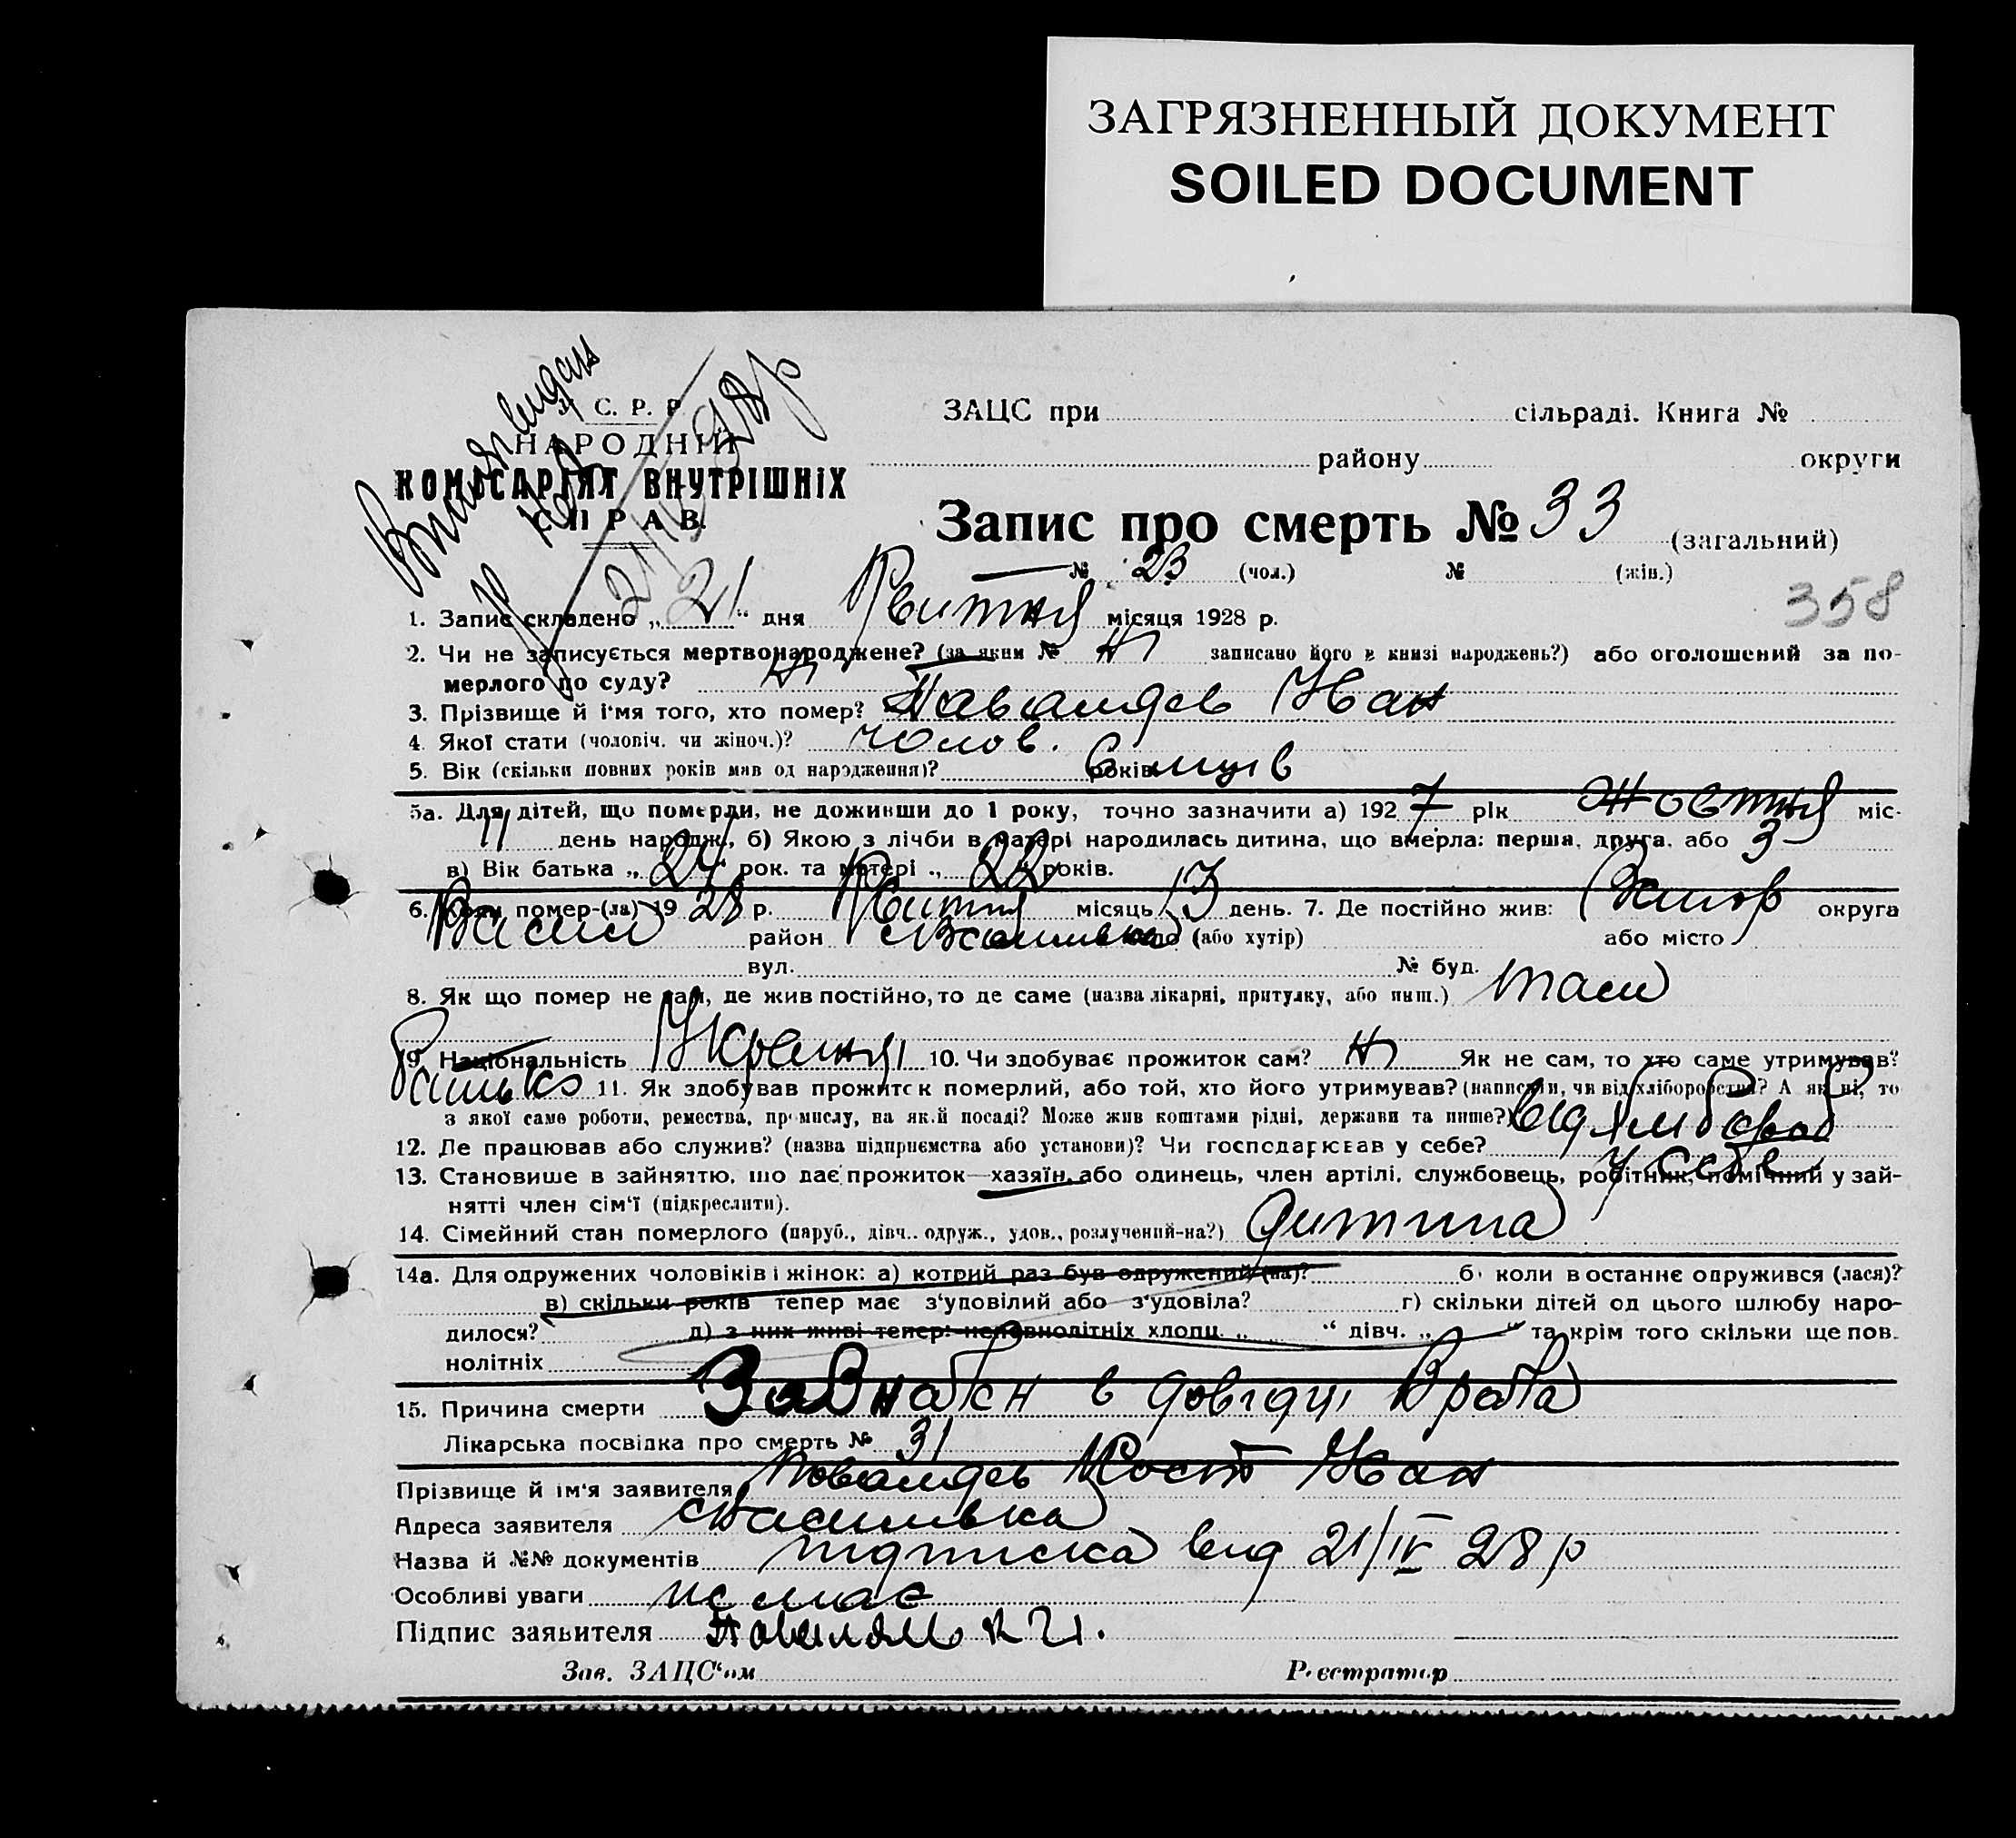 ЗАГРЯЗНЕННЫЙ ДОКУМЕНТ
SOILED DOCUMENT
С. Р. Р.
НАРОДНІЙ
КОМІСАРІЯТ ВНУТРІШНІХ
СПРАВ.
ЗАЦС при сільраді. Книга №
району округи
Запис про смерть № 33 (загальний)
№ 23 (чол.) № (жін.)
358
1. Запис складено „ 21 “ дня Квитня місяця 1928 р.
2. Чи не записується мертвонароджене? (за яким № ні записано його в книзі народжень?) або оголошений за по-
мерлого по суду? ні
3. Прізвище й і'мя того, хто помер? Іван
4. Якої стати (чоловіч. чи жіноч.)? чолов.
5. Вік (скільки повних років мав од народження)? років 6 місців
5а. Для дітей, що померли, не доживши до 1 року, точно зазначити а) 192 7 рік Жовтня міс-
11 день народж., б) Якою з лічби в матері народилась дитина, що вмерла: перша, друга, або 3
в) Вік батька „ 24 рок. та матері „ 22 років.
6. Коли помер-(ла) 19 28 р. Квитня місяць 13 день. 7. Де постійно жив: Запор округа
Васили район с Василівка село (або хутір) або місто
вул. № буд.
8. Як що помер не там, де жив постійно, то де саме (назва лікарні, притулку, або инш.) там
9. Національність Україн 10. Чи здобуває прожиток сам? ні Як не сам, то хто саме утримував?
батько 11. Як здобував прожиток померлий, або той, хто його утримував? (написати, чи від хліборобства? А як ні, то
з якої саме роботи, ремества, промислу, на якій посаді? Може жив коштами рідні, держави та инше?) від хлібороб
12. Де працював або служив? (назва підприємства або установи)? Чи господарював у себе? у себе
13. Становище в зайняттю, що дає прожиток—хазяїн, або одинець, член артілі, службовець, робітник, помічний у зай-
нятті член сім'ї (підкреслити).
14. Сімейний стан померлого (паруб., дівч.. одруж., удов., розлучений-на?) Дитина
14а. Для одружених чоловіків і жінок: а) котрий раз був одружений (на)? б) коли в останнє одружився (лася)?
в) скільки років тепер має з'уповілий або з'удовіла? г) скільки дітей од цього шлюбу наро-
дилося? д) з них живі тепер: неповнолітніх хлопц. „ “ дівч. „ “ та крім того скільки ще пов.
нолітніх
15. Причина смерти в довідці
Лікарська посвідка про смерть № 31
Прізвище й ім'я заявителя Кост Іван
Адреса заявителя с Василівка
Назва й №№ документів підписка від 21/IV 28 р
Особливі уваги немає
Підпис заявителя
Зав. ЗАЦС'ом Реєстратор